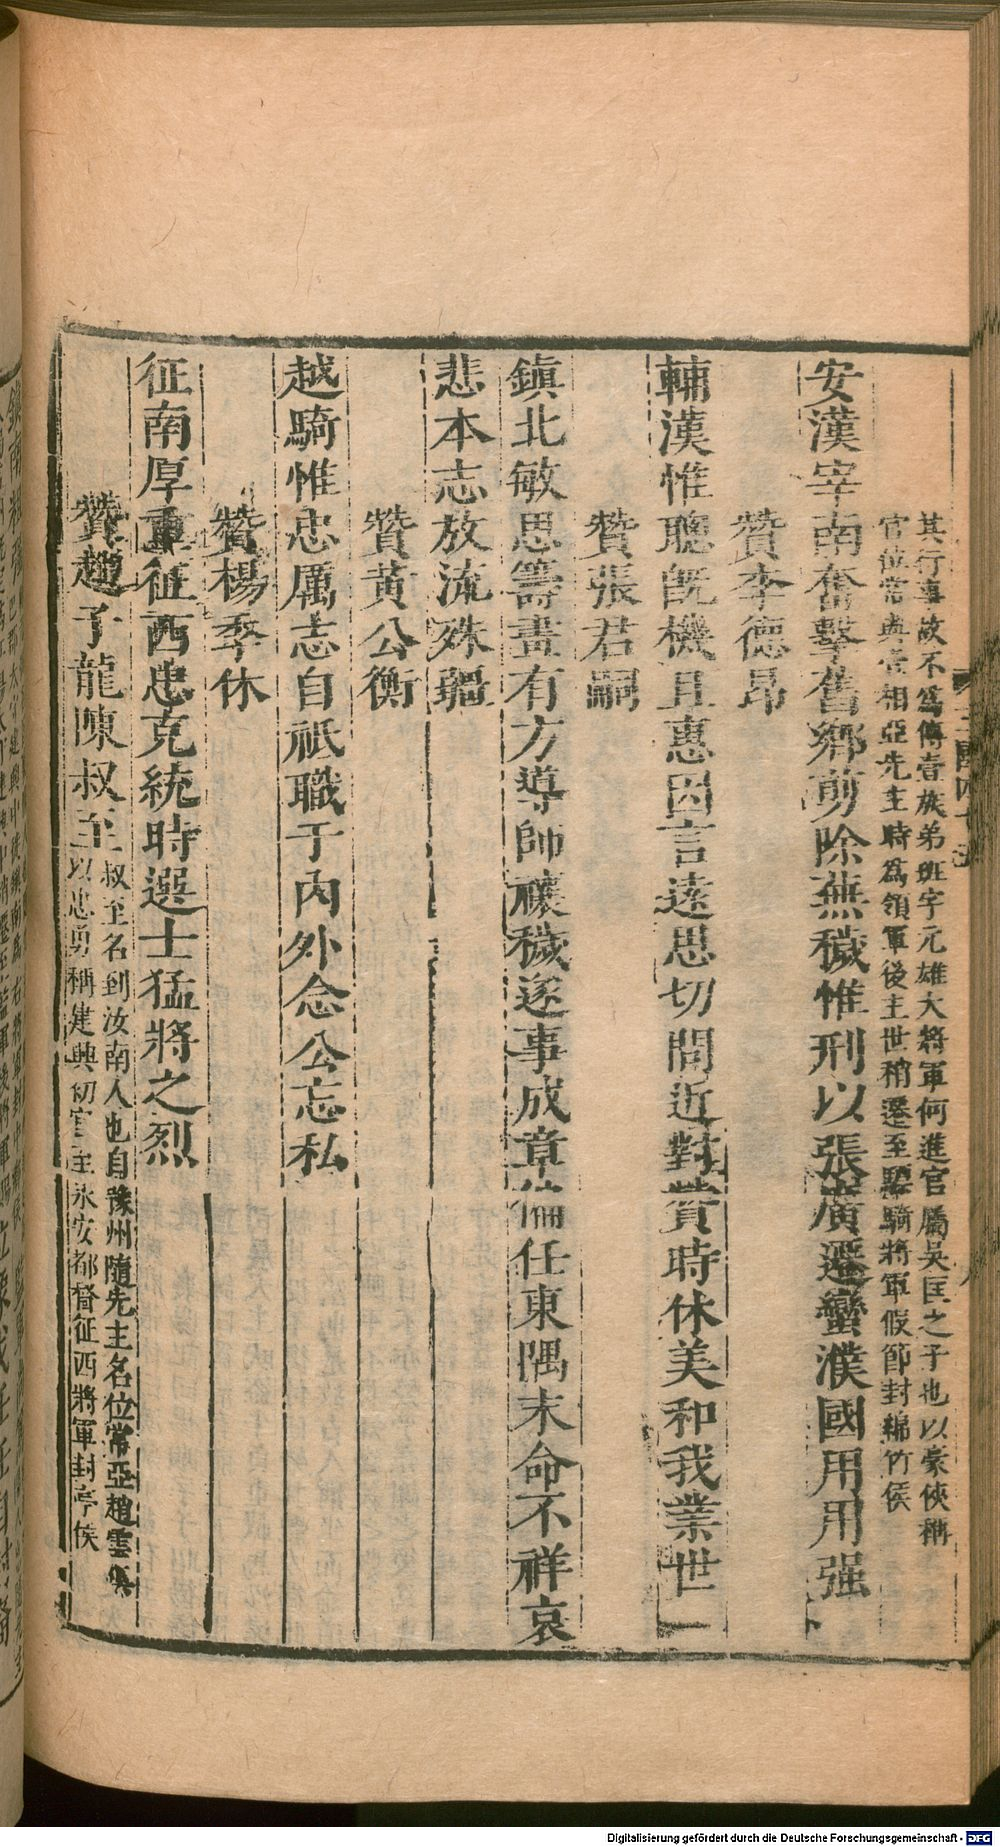 其行事故不爲傳壹族弟班字元雄大將軍何進官屬吳匡之子也以豪俠稱
官位常與壹相亞先主時爲領軍後主世稍遷至驃騎將軍假節封綿竹侯
安漢宰南奮擊舊鄉剪除蕪穢惟刑以張廣遷蠻濮國用用强
贊李德昂
輔漢惟聰既機且惠因言遠思切問近對贊時休美和我業世
贊張君嗣
鎮北敏思籌畫有方導師禳穢遂事成章偏任東隅末命不祥哀
悲本志放流殊疆
贊黃公衡
越騎惟忠厲志自祇職于內外念公忘私
贊楊季休
征南厚重征西忠克統時選士猛將之烈
贊趙子龍陳叔至
叔至名到汝南人也自豫州隨先主名位常亞趙雲俱
以忠勇稱建興初官至永安都督征西將軍封亭侯
Digitalisierung gefördert durch die Deutsche Forschungsgemeinschaft - DFG